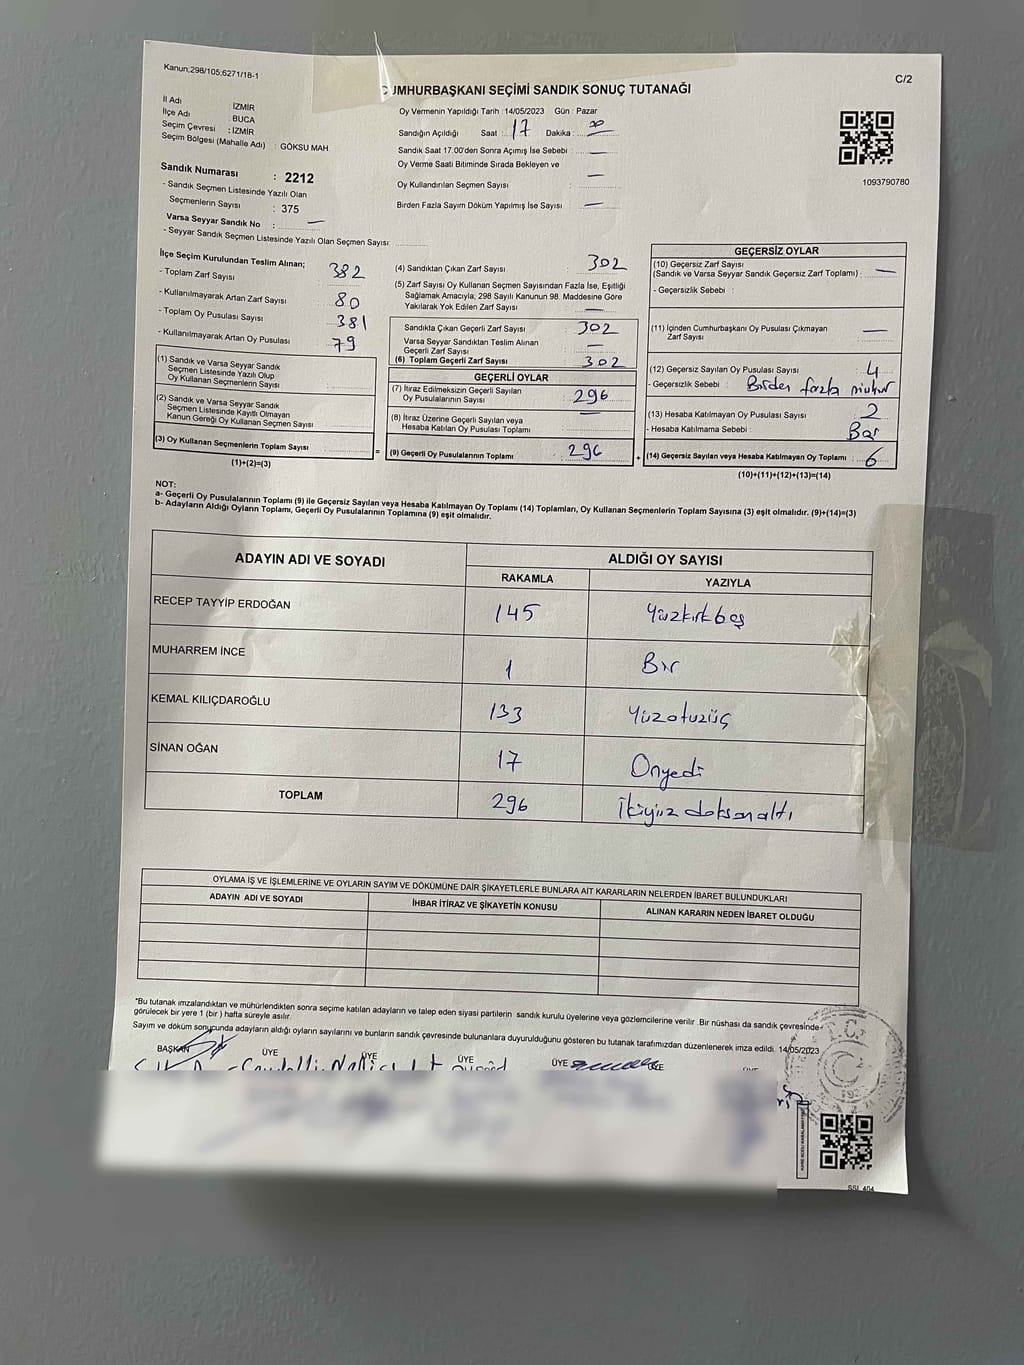 Kanun;298/105;6271/18-1
C/2
CUMHURBAŞKANI SEÇİMİ SANDIK SONUÇ TUTANAĞI
İl Adı : İZMİR
İlçe Adı : BUCA
Seçim Çevresi : İZMİR
Seçim Bölgesi (Mahalle Adı) : GÖKSU MAH.
Sandık Numarası : 2212
- Sandık Seçmen Listesinde Yazılı Olan
Seçmenlerin Sayısı : 375
Varsa Seyyar Sandık No : —
- Seyyar Sandık Seçmen Listesinde Yazılı Olan Seçmen Sayısı:
Oy Vermenin Yapıldığı Tarih :14/05/2023 Gün : Pazar
Sandığın Açıldığı Saat : 17 Dakika :
Sandık Saat 17.00'den Sonra Açımış İse Sebebi : —
Oy Verme Saati Bitiminde Sırada Bekleyen ve
Oy Kullandırılan Seçmen Sayısı : —
Birden Fazla Sayım Döküm Yapılmış İse Sayısı : —
1093790780
İlçe Seçim Kurulundan Teslim Alınan;
- Toplam Zarf Sayısı 382
- Kullanılmayarak Artan Zarf Sayısı 80
- Toplam Oy Pusulası Sayısı 381
- Kullanılmayarak Artan Oy Pusulası 79
(1) Sandık ve Varsa Seyyar Sandık
Seçmen Listesinde Yazılı Olup
Oy Kullanan Seçmenlerin Sayısı :
(2) Sandık ve Varsa Seyyar Sandık
Seçmen Listesinde Kayıtlı Olmayan
Kanun Gereği Oy Kullanan Seçmen Sayısı :
(3) Oy Kullanan Seçmenlerin Toplam Sayısı :
(1)+(2)=(3)
(4) Sandıktan Çıkan Zarf Sayısı : 302
(5) Zarf Sayısı Oy Kullanan Seçmen Sayısından Fazla İse, Eşitliği
Sağlamak Amacıyla, 298 Sayılı Kanunun 98. Maddesine Göre
Yakılarak Yok Edilen Zarf Sayısı : —
Sandıkta Çıkan Geçerli Zarf Sayısı : 302
Varsa Seyyar Sandıktan Teslim Alınan
Geçerli Zarf Sayısı : —
(6) Toplam Geçerli Zarf Sayısı : 302
GEÇERLİ OYLAR
(7) İtiraz Edilmeksizin Geçerli Sayılan
Oy Pusulalarının Sayısı : 296
(8) İtiraz Üzerine Geçerli Sayılan veya
Hesaba Katılan Oy Pusulası Toplamı : —
= (9) Geçerli Oy Pusulalarının Toplamı : 296 +
GEÇERSİZ OYLAR
(10) Geçersiz Zarf Sayısı
(Sandık ve Varsa Seyyar Sandık Geçersiz Zarf Toplamı) : —
- Geçersizlik Sebebi :
(11) İçinden Cumhurbaşkanı Oy Pusulası Çıkmayan
Zarf Sayısı : —
(12) Geçersiz Sayılan Oy Pusulası Sayısı : 4
- Geçersizlik Sebebi : Birden fazla mühür
(13) Hesaba Katılmayan Oy Pusulası Sayısı : 2
- Hesaba Katılmama Sebebi : Bar
(14) Geçersiz Sayılan veya Hesaba Katılmayan Oy Toplamı : 6
(10)+(11)+(12)+(13)=(14)
NOT:
a- Geçerli Oy Pusulalarının Toplamı (9) ile Geçersiz Sayılan veya Hesaba Katılmayan Oy Toplamı (14) Toplamları, Oy Kullanan Seçmenlerin Toplam Sayısına (3) eşit olmalıdır. (9)+(14)=(3)
b- Adayların Aldığı Oyların Toplamı, Geçerli Oy Pusulalarının Toplamına (9) eşit olmalıdır.
ADAYIN ADI VE SOYADI ALDIĞI OY SAYISI
RAKAMLA YAZIYLA
RECEP TAYYİP ERDOĞAN 145 Yüzkırkbeş
MUHARREM İNCE 1 Bir
KEMAL KILIÇDAROĞLU 133 Yüzotuzüç
SİNAN OĞAN 17 Onyedi
TOPLAM 296 İkiyüz doksanaltı
OYLAMA İŞ VE İŞLEMLERİNE VE OYLARIN SAYIM VE DÖKÜMÜNE DAİR ŞİKAYETLERLE BUNLARA AİT KARARLARIN NELERDEN İBARET BULUNDUKLARI
ADAYIN ADI VE SOYADI İHBAR İTİRAZ VE ŞİKAYETİN KONUSU ALINAN KARARIN NEDEN İBARET OLDUĞU
*Bu tutanak imzalandıktan ve mühürlendikten sonra seçime katılan adayların ve talep eden siyasi partilerin sandık kurulu üyelerine veya gözlemcilerine verilir. Bir nüshası da sandık çevresinde
görülecek bir yere 1 (bir) hafta süreyle asılır.
Sayım ve döküm sonucunda adayların aldığı oyların sayılarını ve bunların sandık çevresinde bulunanlara duyurulduğunu gösteren bu tutanak tarafımızdan düzenlenerek imza edildi. 14/05/2023
BAŞKAN ÜYE ÜYE ÜYE ÜYE ÜYE
T.C.
SSI_404